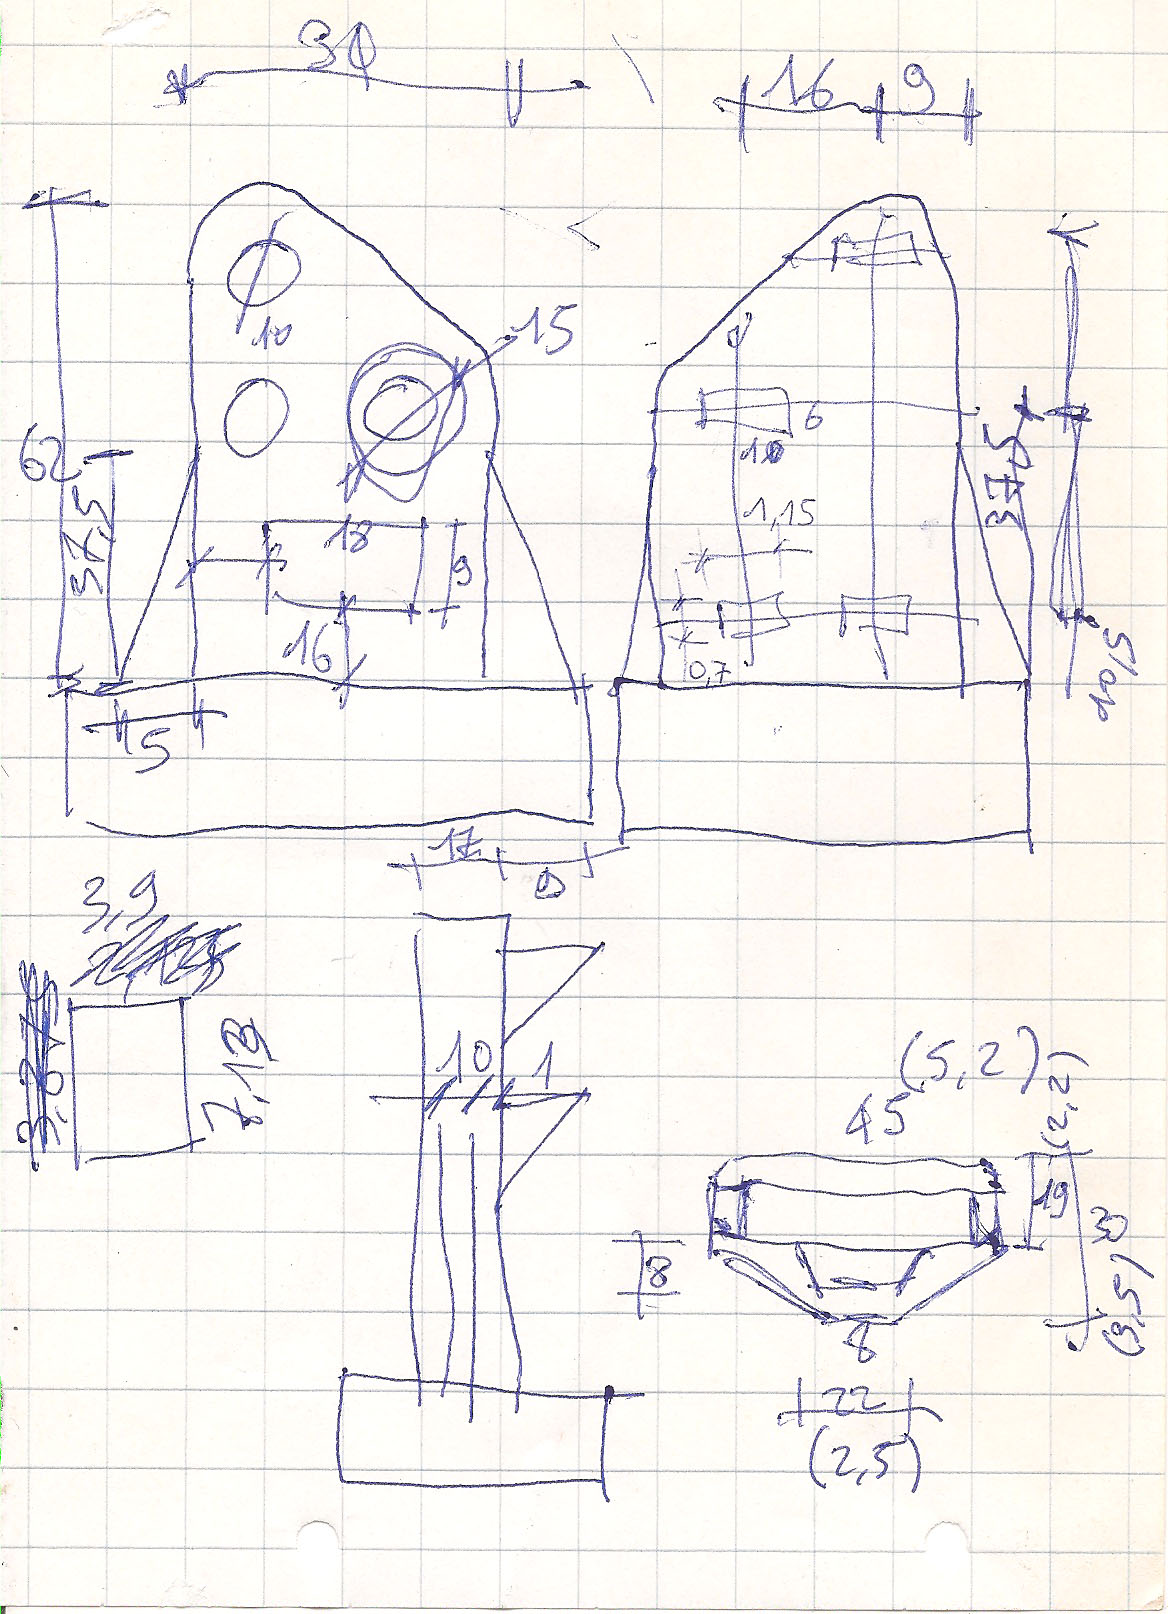 16 9
15
10
62
37,5
6
10
37,5
1,15
18
9
3
16
0,7
20,5
5
17
9
3,9
7,13
10
1
(5,2)
45
(2,2)
19
30
(3,5)
8
8
22
(2,5)